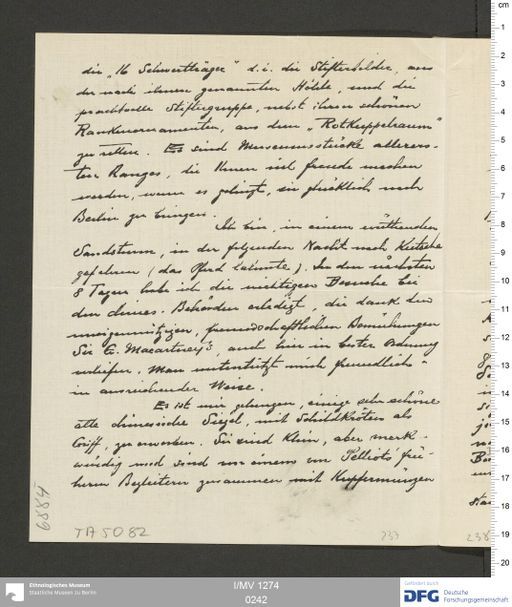 die „16 Schwertträger" d.i. die Stifterbilder, aus
der nach ihnen genannten Höhle, und die
prachtvolle Stiftergruppe, nebst ihren schönen
Rankenornamenten, aus dem „Rotkuppelraum"
zu retten. Es sind Museumsstücke allerers-
ten Ranges, die Ihnen viel Freude machen
werden, wenn es gelingt, sie glücklich nach
Berlin zu bringen.
Ich bin, in einem wüthenden
Sandsturm, in der folgenden Nacht nach Kutscha
gefahren (das Pferd lahmte). In den nächsten
8 Tagen habe ich die wichtigen Besuche bei
den chines. Behörden erledigt, die dank den
uneigennützigen, freundschaftlichen Bemühungen
Sir G. Macartney's, auch hier in bester Ordnung
verliefen. Man unterstützt mich freundlichst
in ausreichender Weise.
Es ist mir gelungen, einige sehr schöne
alte chinesische Siegel, mit Schildkröten als
Griff, zu erwerben. Sie sind klein, aber merk-
würdig und sind von einem von Pelliots frü-
heren Begleitern zusammen mit Kupfermünzen
6884
TA 5082
237
238
cm
1
2
3
4
5
6
7
8
9
10
11
12
13
14
15
16
17
18
19
20
Ethnologisches Museum
Staatliche Museen zu Berlin
I/MV 1274
0242
Gefördert durch
DFG
Deutsche
Forschungsgemeinschaft